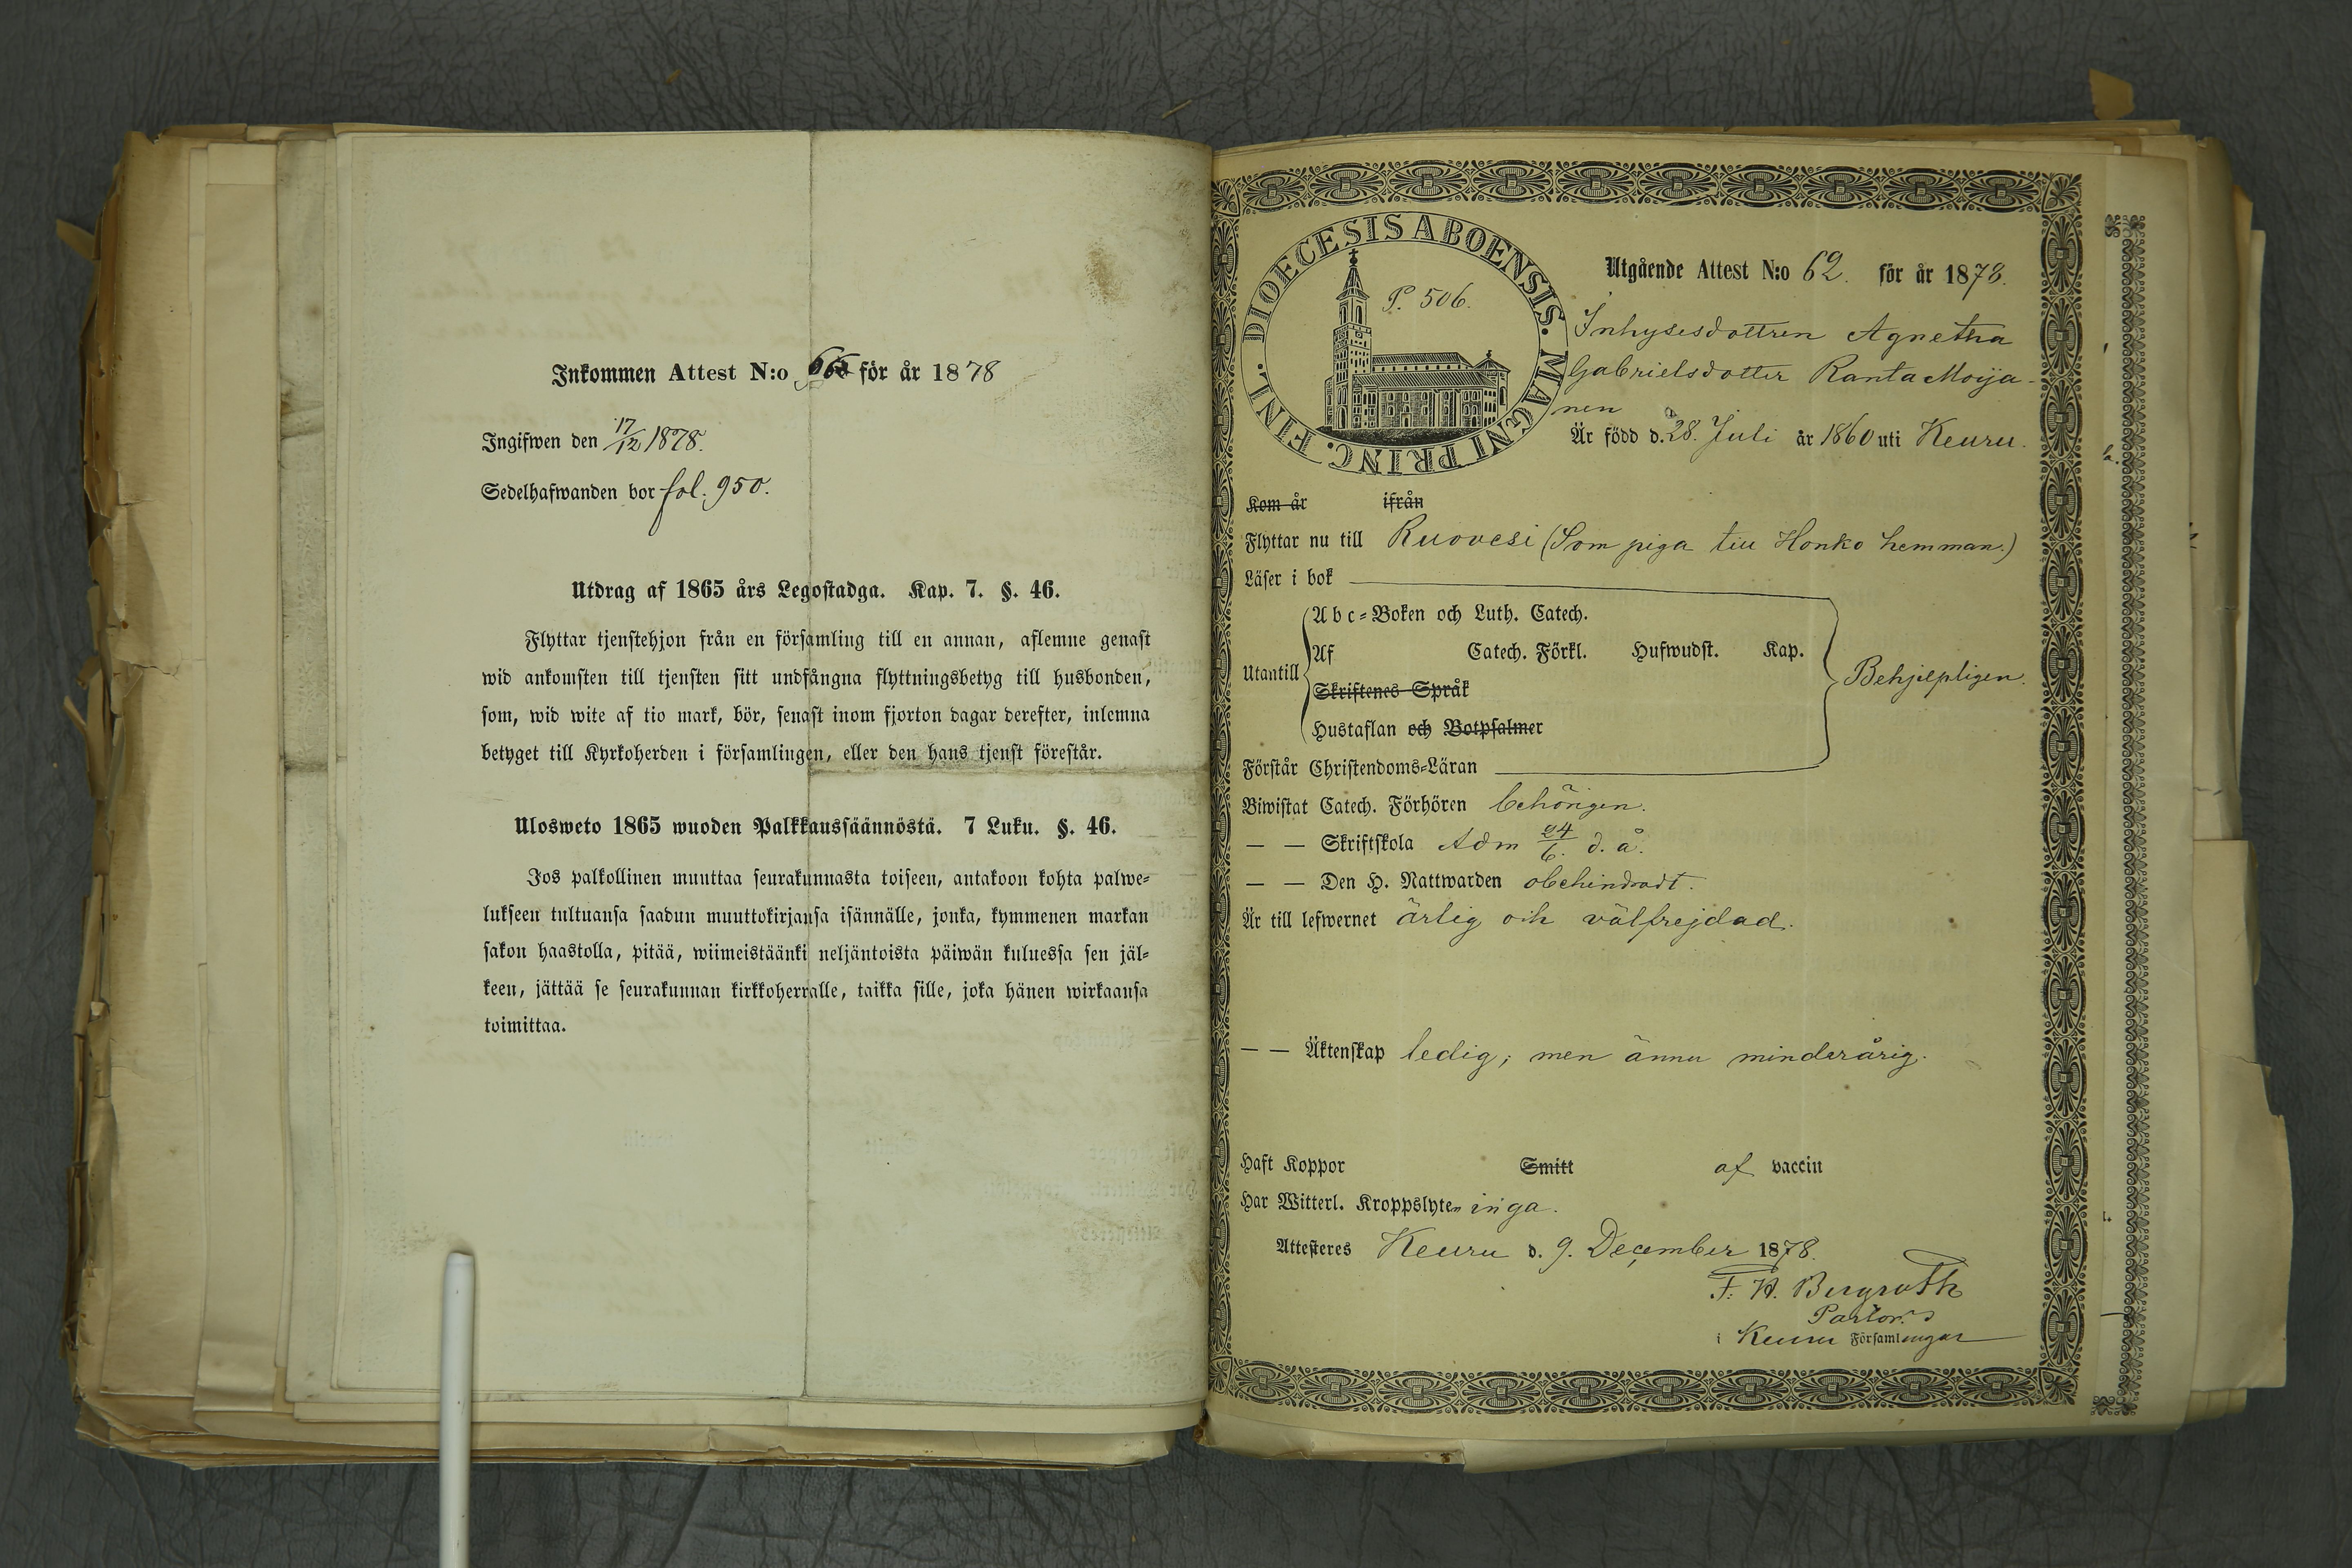 Inkommen Attest N:o för år 1878
Ingifwen den 17/12 1878.
Sedelhafwanden bor fol. 950.
Utdrag af 1865 års Legostadga. Kap. 7. §. 46.
Flyttar tjenstehjon från en församling till en annan, aflemne genast
wid ankomsten till tjensten sitt undfångna flyttningsbetyg till husbonden,
som, wid wite af tio mark, bör, senast inom fjorton dagar derefter, inlemna
betyget till Kyrkoherden i församlingen, eller den hans tjenst förestår.
Ulosweto 1865 wuoden Palkkaussäännöstä. 7 Luku. §. 46.
Jos palkollinen muuttaa seurakunnasta toiseen, antakoon kohta palwe=
lukseen tultuansa saadun muuttokirjansa isännälle, jonka, kymmenen markan
sakon haastolla, pitää, wiimeistäänki neljäntoista päiwän kuluessa sen jäl=
keen, jättää se seurakunnan kirkkoherralle, taikka sille, joka hänen wirkaansa
toimittaa.
DIOECESIS ABOENSIS. MAGNI PRINC. FINL.
P. 506.
Utgående Attest N:o 62. för år 1878.
Inhysesdottren Agnetha
Gabrielsdotter Ranta Moija-
nen
Är född d. 28. Juli år 1860 uti Keuru.
Kom år ifrån
Flyttar nu till Ruovesi (Som piga till Honko hemman.)
Läser i bok
Utantill
Abc=Boken och Luth. Catech.
Af Catech. Förkl. Hufwudst. Kap.
Skriftenes Språk
Hustaflan och Botpsalmer
Behjelpligen.
Förstår Christendoms=Läran
Biwistat Catech. Förhören behörigen.
— — Skriftskola Adm 24/6. d. å.
— — Den H. Nattwarden obehindradt.
Är till lefwernet ärlig och välfrejdad.
— — Äktenskap ledig; men ännu minderårig.
Haft Koppor Smitt af vaccin
Har Witterl. Kroppslyten inga.
Attesteres Keuru d. 9. December 1878.
F. W. Bergroth
Pastor
i Keuru Församlingar